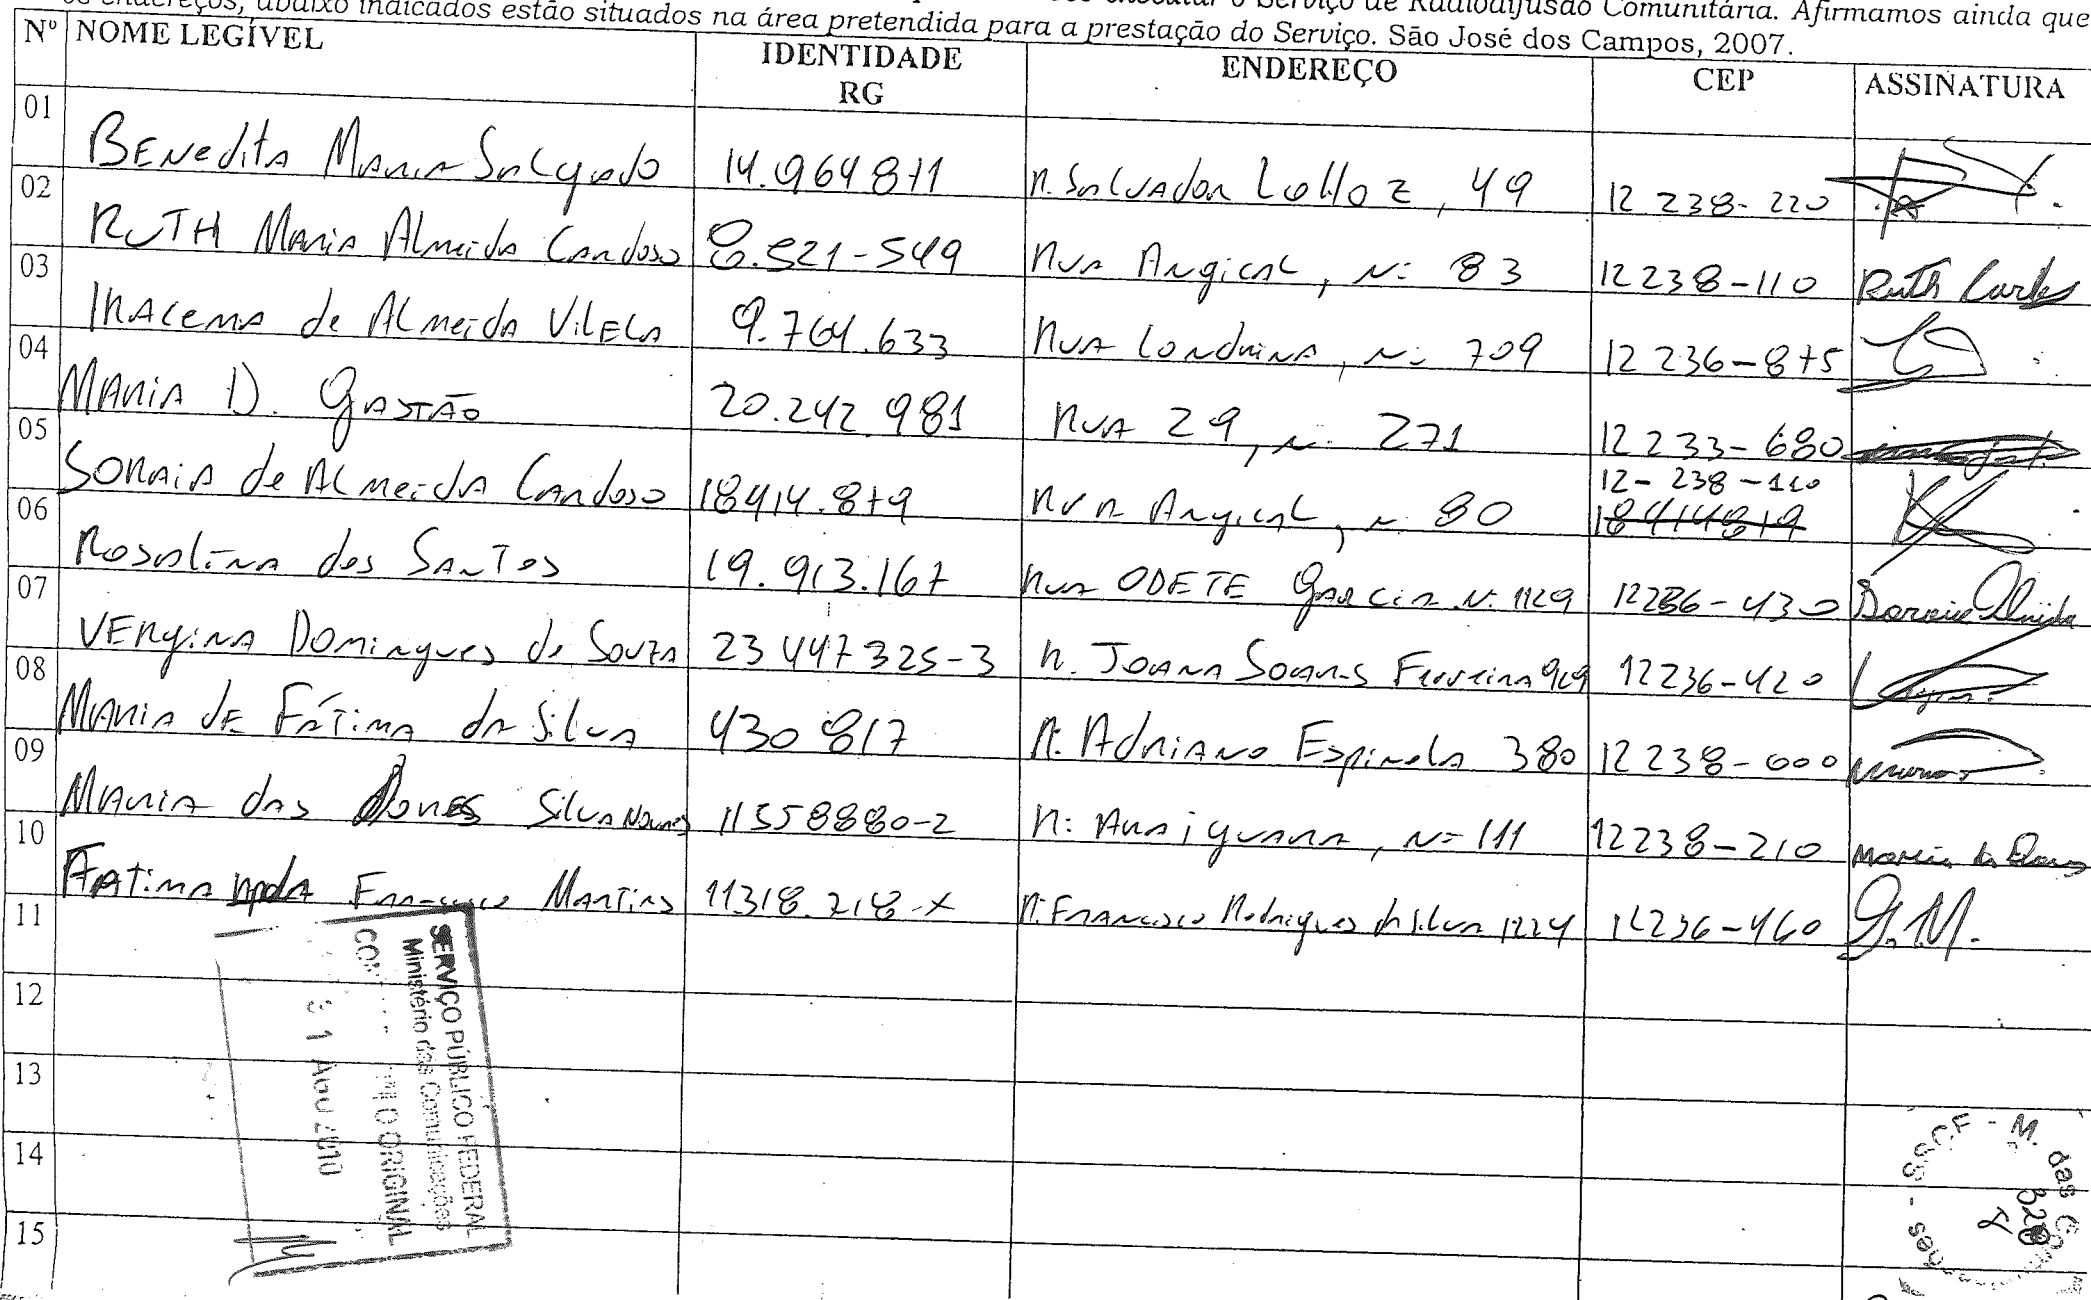 os endereços, abaixo indicados estão situados na área pretendida para a prestação do Serviço. São José dos Campos, 2007.
o Serviço de Radiodifusão Comunitária. Afirmamos ainda que
Nº NOME LEGÍVEL IDENTIDADE RG ENDEREÇO CEP ASSINATURA
01 BENedita Maria Salgado 14.964871 R. Salvador Lolloz, 49 12 238-220
02 RUTH Maria Almeida Cardoso 8.521-549 Rua Angical, Nº 83 12238-110 Ruth
03 IRAcema de ALmeida VilELa 9.764.633 Rua Londrina, Nº 709 12 236-875
04 MARIA D. GASTÃO 20.242.981 RUA 29, Nº 271 12 233-680
05 SORAIA de ALmeida Cardoso 18414.879 Rua Angical, Nº 80 12-238-110
18414879
06 Rosalina dos SANTOS 19.913.167 Rua ODETE Garcia Nº 1129 12236-430
07 VERgina Domingues de Souza 23 447 325-3 R. JOANA Soares Ferreira 969 12236-420
08 MARIA dE FÁTima da Silva 430 817 R. Adriano Espinola 380 12 238-000
09 MARIA das Dores Silva Novaes 11558880-2 R: Araiguara, Nº 111 12238-210 Maria
10 FATima Francisco Martins 11318.218-X R. Francisco Rodrigues da Silva 1224 12236-460 G.M.
11
12
13
14
15
SERVIÇO PÚBLICO FEDERAL
Ministério das Comunicações
O ORIGINAL
31 AGO 2010
SSCF - M. das
328